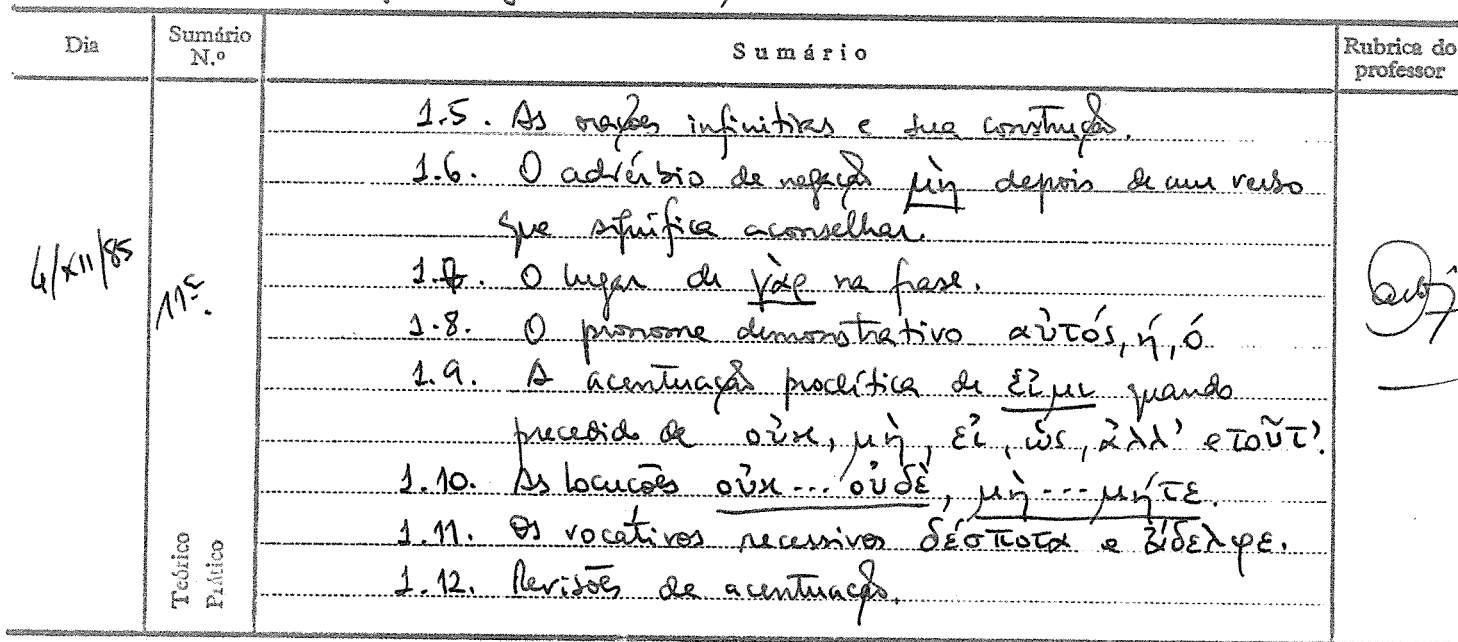 Dia
Sumário N.º
Sumário
Rubrica do professor
1.5. As orações infinitivas e sua construção.
1.6. O advérbio de negação μὴ depois de um verbo
que significa aconselhar.
1.7. O lugar de γὰρ na frase.
4/XII/85
11º
1.8. O pronome demonstrativo αὐτός, ή, ό
1.9. A acentuação proclítica de εἰμι quando
precedido de οὐκ, μὴ, εἰ, ὡς, ἀλλ' e τοῦτ'.
1.10. As locuções οὐκ --- οὐδὲ, μὴ --- μήτε.
1.11. Os vocativos recessivos δέσποτα e ἄδελφε.
Teórico
Prático
1.12. Revisões de acentuação.